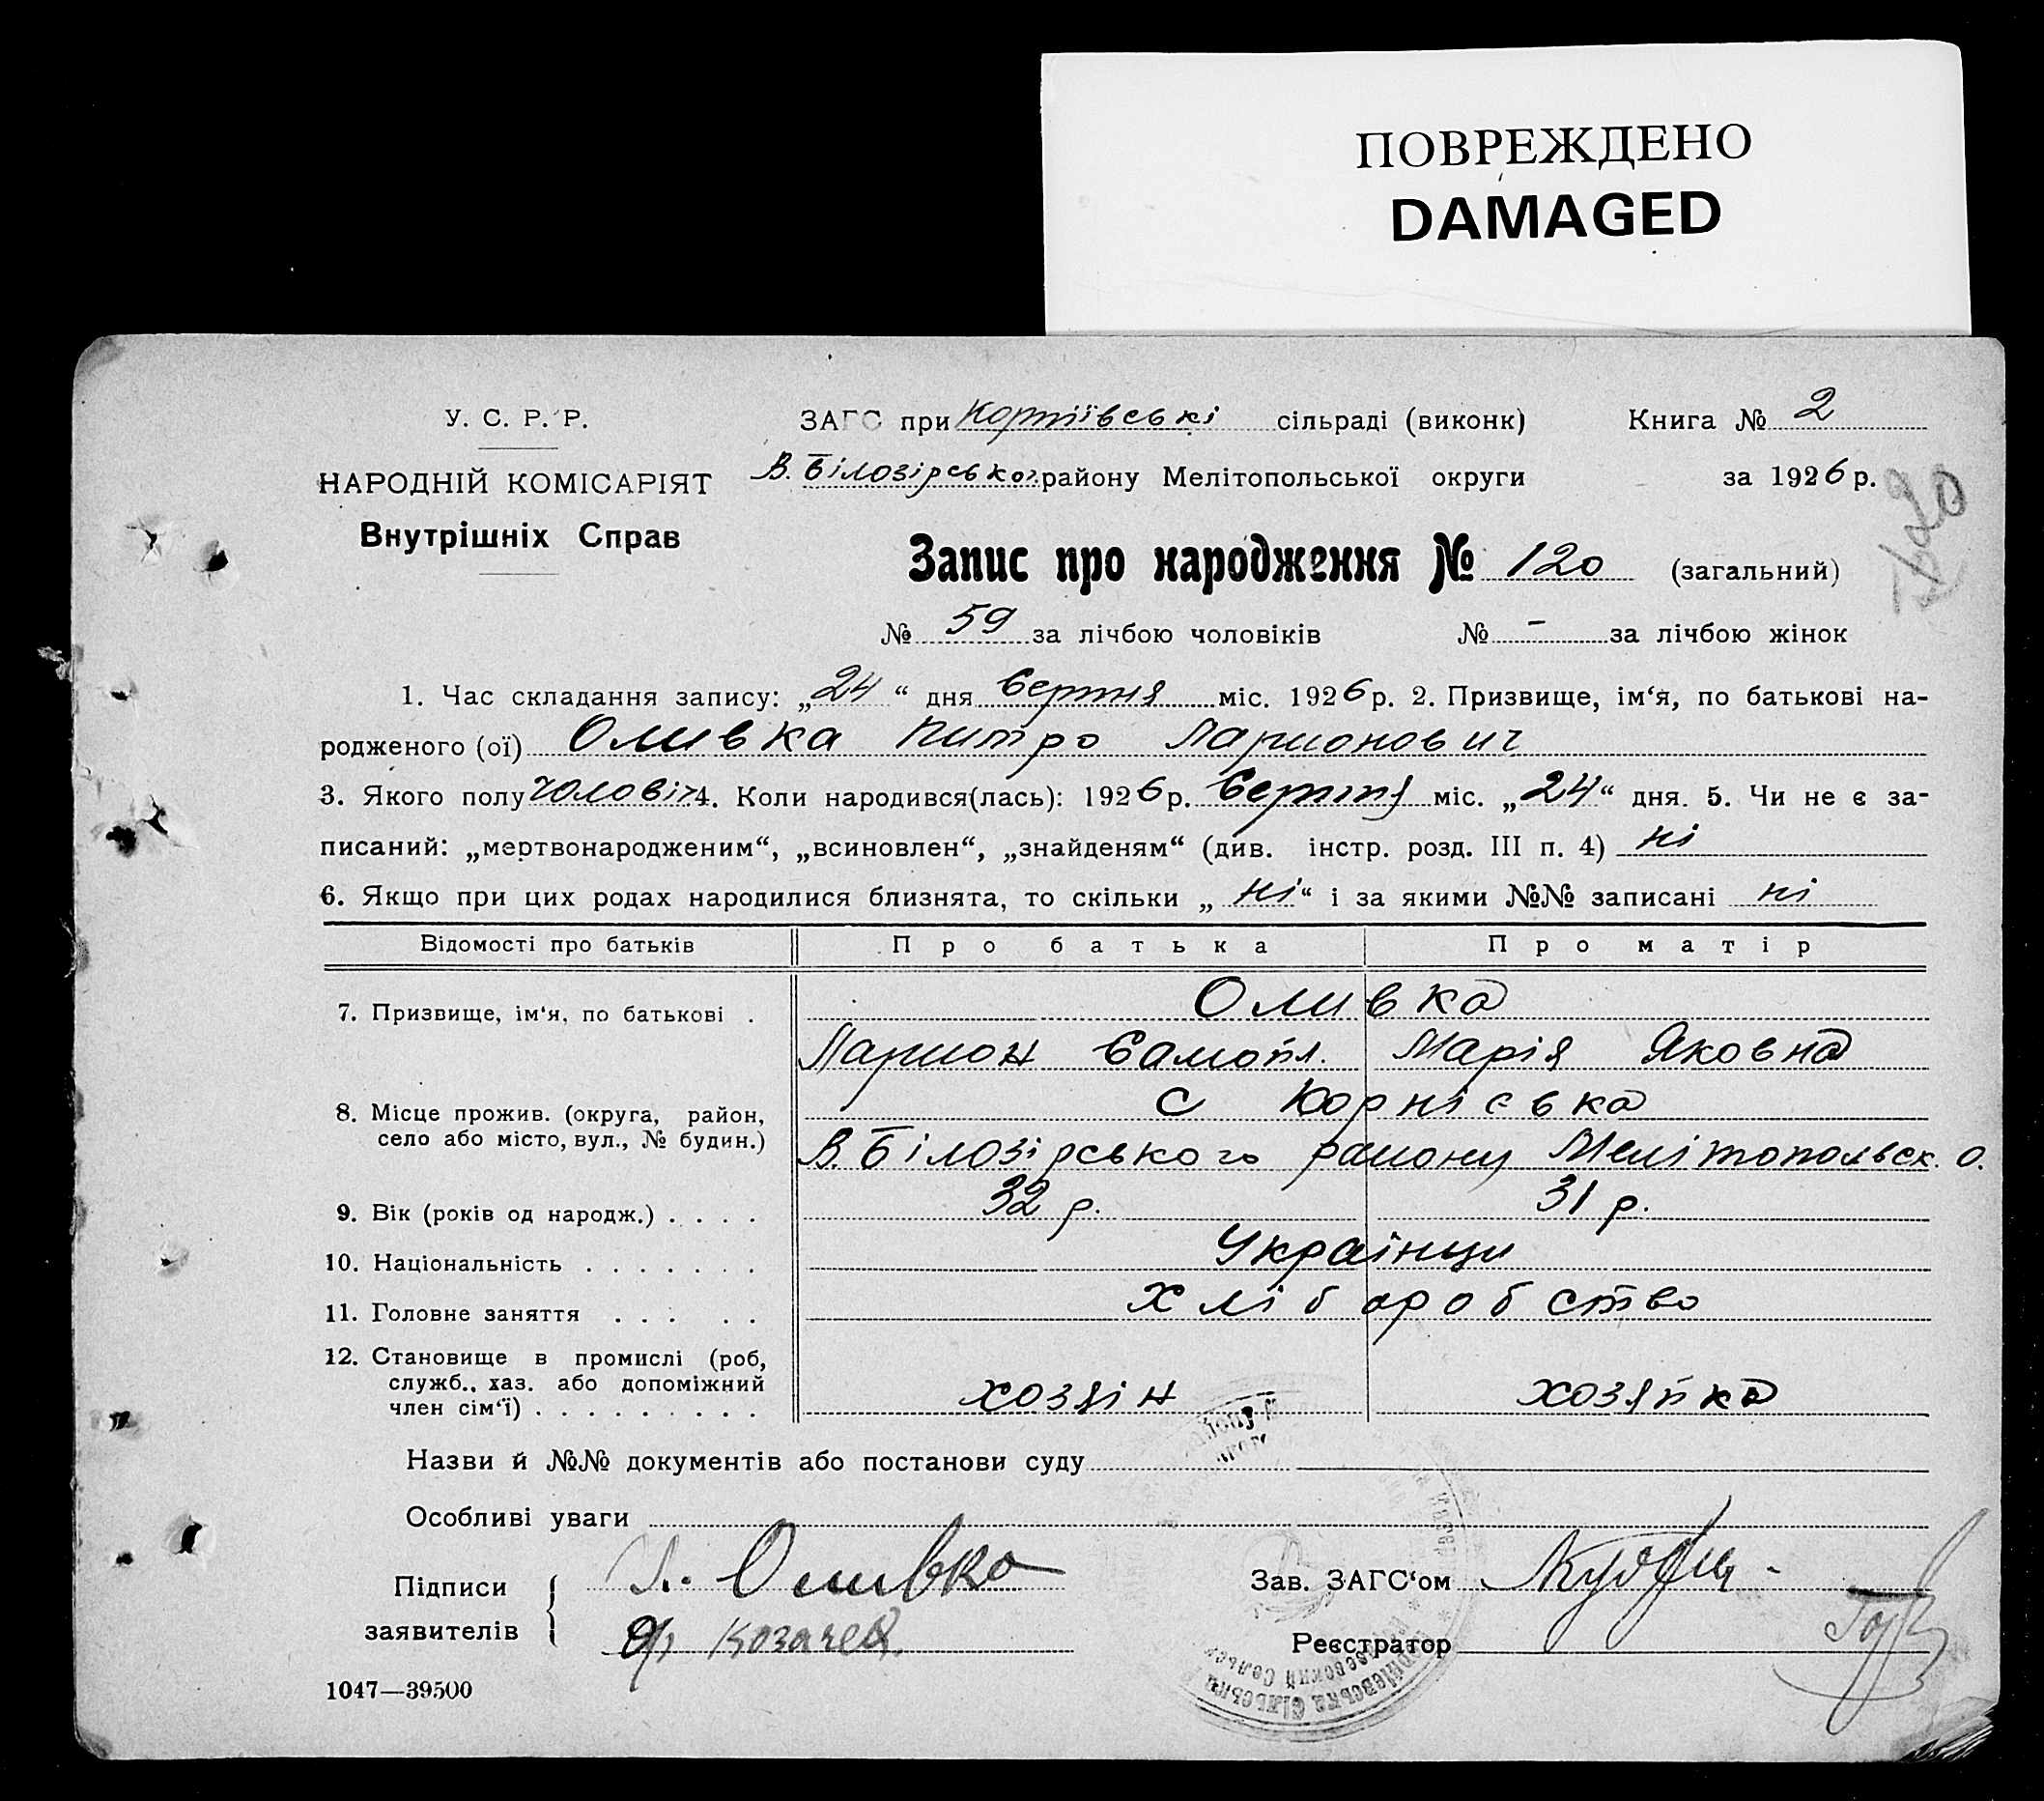 ПОВРЕЖДЕНО
DAMAGED
У. С. Р. Р.
ЗАГС при сільраді (виконк) Книга № 2
НАРОДНІЙ КОМІСАРІЯТ
В. Білозірськог району Мелітопольської округи за 1926 р.
Внутрішніх Справ
Запис про народження № 120 (загальний)
№ 59 за лічбою чоловіків № - за лічбою жінок
1. Час складання запису: „24“ дня Серпня міс. 1926 р. 2. Призвище, ім‘я, по батькові на-
родженого (ої) Оливка Питро Ларионович
3. Якого полу чоловіч 4. Коли народився(лась): 1926 р. Серпня міс. „24“ дня. 5. Чи не є за-
писаний: „мертвонародженим“, „всиновлен“, „знайденям“ (див. інстр. розд. III п. 4) ні
6. Якщо при цих родах народилися близнята, то скільки „ні“ і за якими №№ записані ні
Відомості про батьків Про батька Про матір
7. Призвище, ім‘я, по батькові . Оливка
Ларион Самойл. Марія Яковна
8. Місце прожив. (округа, район, село або місто, вул., № будин.) с Корнієвка
В. Білозірського району Мелітопольск. О.
9. Вік (років од народж.) . . . . 32 р. 31 р.
10. Національність . . . . . . . Українци
11. Головне заняття . . . . . Хліборобство
12. Становище в промислі (роб,
служб., хаз. або допоміжний
член сім‘ї) . . . . . . . . . хозяін хозяйка
Назви й №№ документів або постанови суду
Особливі уваги
Підписи
заявителів
Л. Оливка
Зав. ЗАГС‘ом
Реєстратор
1047—39500